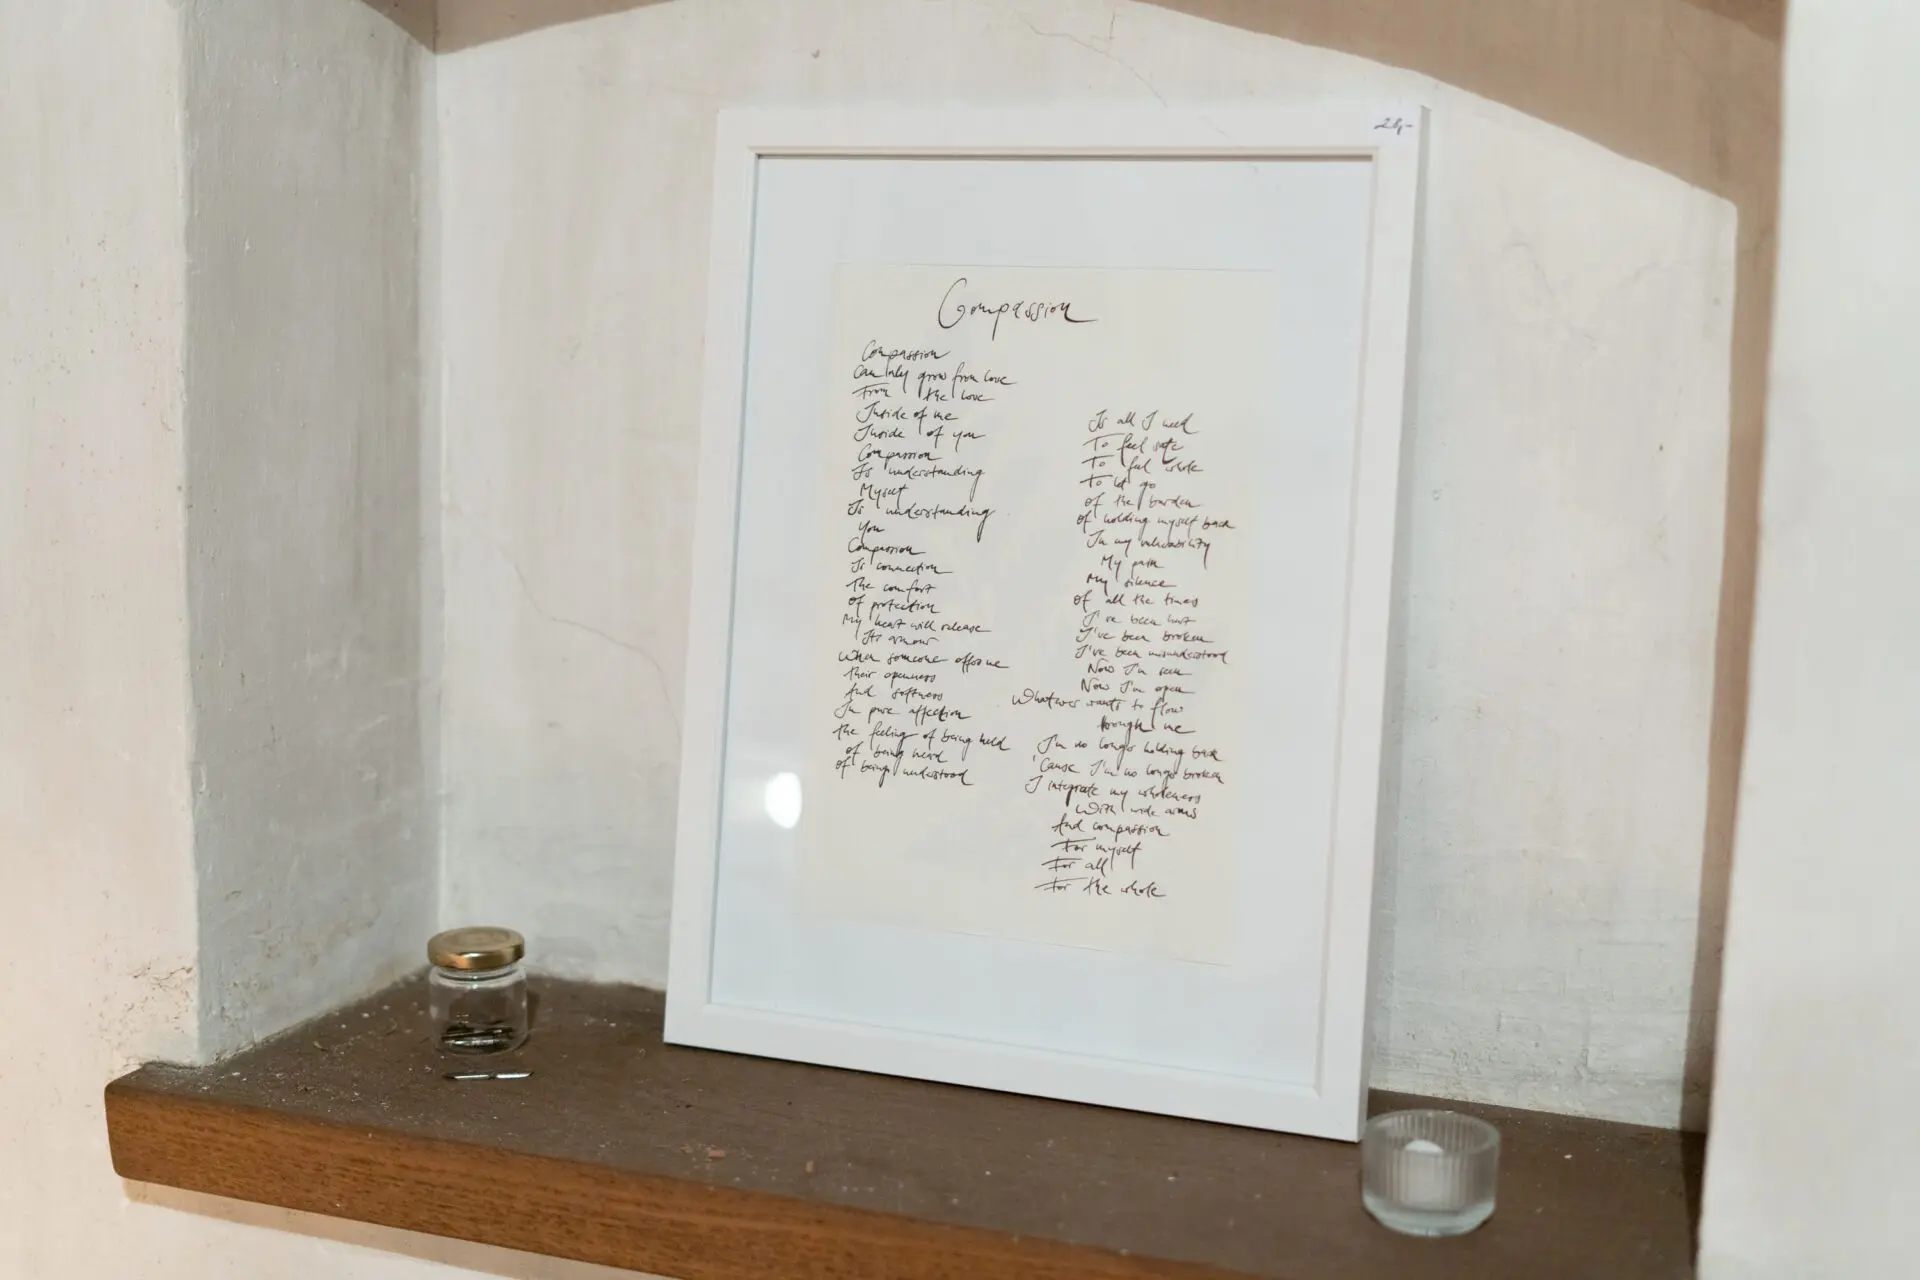 28,-
Compassion
Compassion
Can only grow from love
From the love
Inside of me
Inside of you
Compassion
Is understanding
Myself
Is understanding
You
Compassion
Is connection
The comfort
Of protection
My heart will release
Its armour
When someone offers me
their openness
And softness
In pure affection
the feeling of being held
of being heard
of being understood
Is all I need
To feel safe
To feel whole
To let go
of the burden
of holding myself back
In my vulnerability
My pain
My silence
of all the times
I've been hurt
I've been broken
I've been misunderstood
Now I'm seen
Now I'm open
Whatever wants to flow
trough me
I'm no longer holding back
'Cause I'm no longer broken
I integrate my wholeness
With wide arms
And compassion
For myself
For all
For the whole